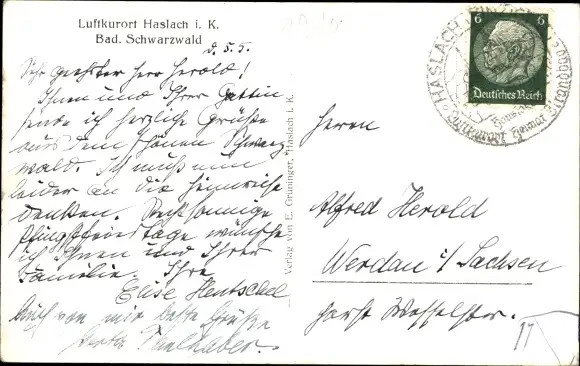 Luftkurort Haslach i. K.
Bad. Schwarzwald
d. 5. 5.
Sehr geehrter Herr Herold!
Ihnen und Ihrer Gattin
sende ich herzliche Grüße
aus dem schönen Schwarz
wald. Ich muß nun
leider an die Heimreise
denken. Recht sonnige
Pfingstfeiertage wünsche
ich Ihnen und Ihrer
Familie. Ihre
Elise Hentschel
Auch von mir beste Grüße
Verlag von E. Grüninger, Haslach i. K.
6 6
Deutsches Reich
HASLACH
Luftkurort Heimat
Herrn
Alfred Herold
Werdau i/Sachsen